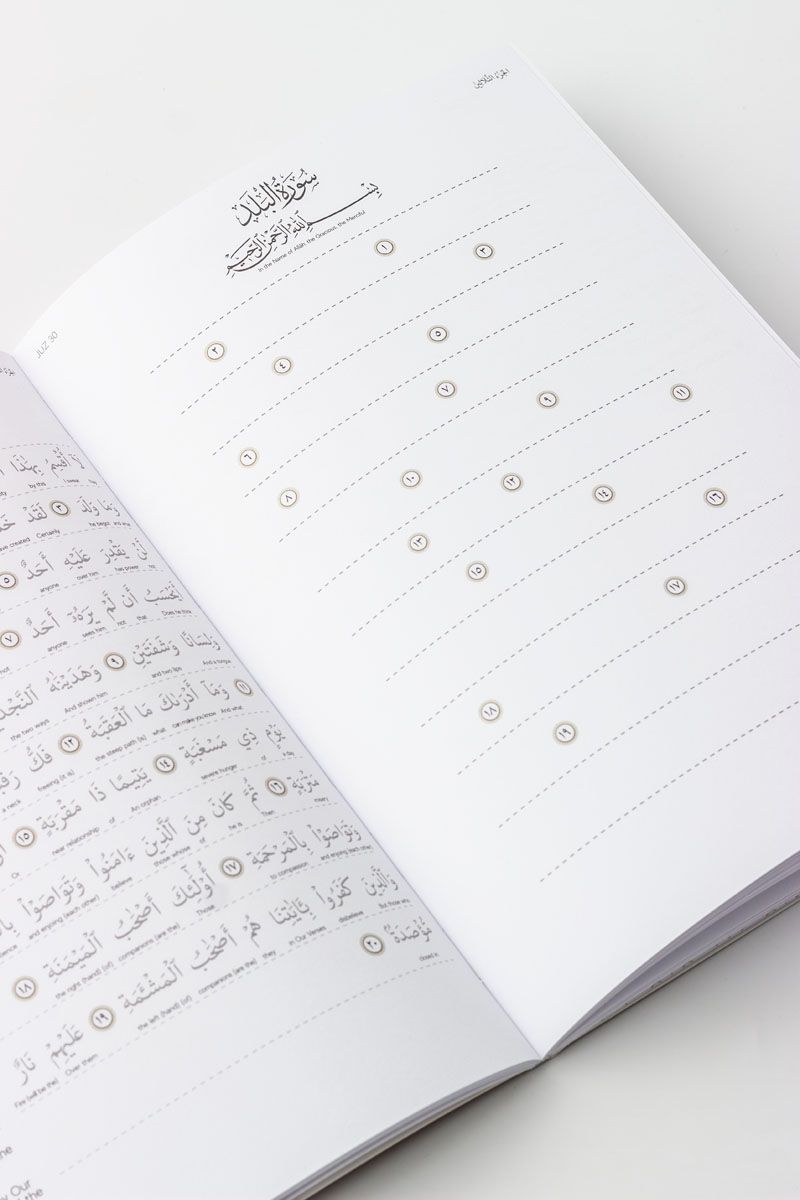 الجزء الثلاثين
سُورَةُ الْبَلَد
بِسْمِ اللَّهِ الرَّحْمَٰنِ الرَّحِيمِ
In the Name of Allah, the Gracious, the Merciful
JUZ 30
١ ٢
٣ ٤
٥ ٦
٧ ٨
٩ ١٠
١١ ١٢ ١٣
١٤ ١٥
١٦
١٧ ١٨
١٩
لَآ أُقْسِمُ بِهَٰذَا
I swear by this
وَمَا وَلَدَ ٣ لَقَدْ
he begot Certainly
لَّن يَقْدِرَ عَلَيْهِ أَحَدٌ ٥
not has power over him anyone
أَيَحْسَبُ أَن لَّمْ يَرَهُۥٓ أَحَدٌ ٧
Does he think that not sees him anyone
وَلِسَانًا وَشَفَتَيْنِ ٩ وَهَدَيْنَٰهُ ٱلنَّجْدَ
And a tongue and two lips And shown him the two ways
١١ وَمَآ أَدْرَىٰكَ مَا ٱلْعَقَبَةُ ١٢ فَكُّ
And what can make you know what the steep path (is) freeing (it is) a neck
يَوْمٍ ذِى مَسْغَبَةٍ ١٤ يَتِيمًا ذَا مَقْرَبَةٍ ١٥
a day of severe hunger An orphan of near relationship Or
مَتْرَبَةٍ ١٦ ثُمَّ كَانَ مِنَ ٱلَّذِينَ ءَامَنُوا۟ وَتَوَاصَوْا۟
misery Then he is of those who believe and enjoing (each other)
وَتَوَاصَوْا۟ بِٱلْمَرْحَمَةِ ١٧ أُو۟لَٰٓئِكَ أَصْحَٰبُ ٱلْمَيْمَنَةِ ١٨
and enjoing (each other) to compassion Those (are the) companions (of) the right (hand)
وَٱلَّذِينَ كَفَرُوا۟ بِـَٔايَٰتِنَا هُمْ أَصْحَٰبُ ٱلْمَشْـَٔمَةِ ١٩ عَلَيْهِمْ نَارٌ
But those who disbelieve in Our Verses they (are the) companions (of) the left (hand) Over them Fire (will be the)
مُّؤْصَدَةٌۢ ٢٠
closed in